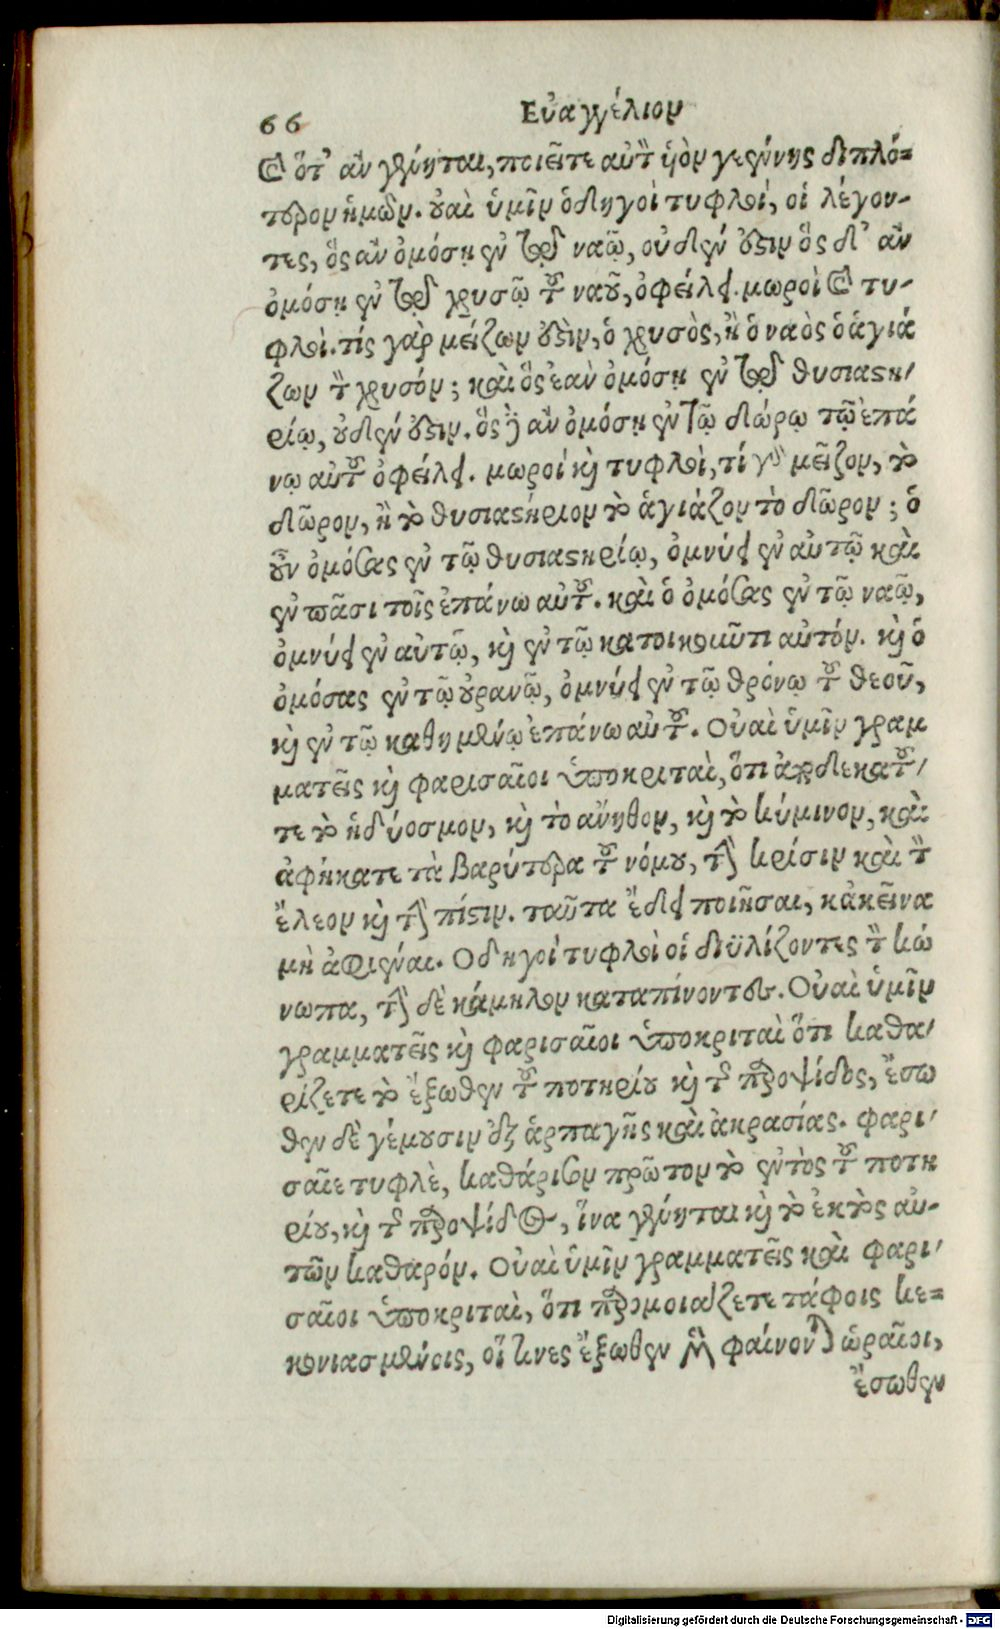 66 Εὐαγγέλιον
καὶ ὅτ' ἂν γένηται, ποιεῖτε αὐτὸν ὑὸν γεέννης διπλό-
τερον ὑμῶν. οὐαὶ ὑμῖν ὁδηγοὶ τυφλοί, οἱ λέγον-
τες, ὃς ἂν ὀμόσῃ ἐν τῷ ναῷ, οὐδέν ἐστιν ὃς δ' ἂν
ὀμόσῃ ἐν τῷ χρυσῷ τοῦ ναοῦ, ὀφείλει. μωροὶ καὶ τυ-
φλοί. τίς γὰρ μείζων ἐστὶν, ὁ χρυσὸς, ἢ ὁ ναὸς ὁ ἁγιά
ζων τὸν χρυσόν; καὶ ὃς ἐὰν ὀμόσῃ ἐν τῷ θυσιαστη-
ρίῳ, οὐδέν ἐστιν. ὃς δ' ἂν ὀμόσῃ ἐν τῷ δώρῳ τῷ ἐπά
νω αὐτοῦ ὀφείλει. μωροί καὶ τυφλοὶ, τί γὰρ μεῖζον, τὸ
δῶρον, ἢ τὸ θυσιαστήριον τὸ ἁγιάζον τὸ δῶρον; ὁ
οὖν ὀμόσας ἐν τῷ θυσιαστηρίῳ, ὀμνύει ἐν αὐτῷ καὶ
ἐν πᾶσι τοῖς ἐπάνω αὐτοῦ. καὶ ὁ ὀμόσας ἐν τῷ ναῷ,
ὀμνύει ἐν αὐτῷ, καὶ ἐν τῷ κατοικοῦντι αὐτόν. καὶ ὁ
ὀμόσας ἐν τῷ οὐρανῷ, ὀμνύει ἐν τῷ θρόνῳ τοῦ θεοῦ,
καὶ ἐν τῷ καθημένῳ ἐπάνω αὐτοῦ. Οὐαὶ ὑμῖν γραμ
ματεῖς καὶ φαρισαῖοι ὑποκριταὶ, ὅτι ἀποδεκατοῦ-
τε τὸ ἡδύοσμον, καὶ τὸ ἄνηθον, καὶ τὸ κύμινον, καὶ
ἀφήκατε τὰ βαρύτερα τοῦ νόμου, τὴν κρίσιν καὶ τὸν
ἔλεον καὶ τὴν πίστιν. ταῦτα ἔδει ποιῆσαι, κἀκεῖνα
μὴ ἀφιέναι. Οδηγοί τυφλοὶ οἱ διϋλίζοντες τὸν κώ
νωπα, τὴν δὲ κάμηλον καταπίνοντες. Οὐαὶ ὑμῖν
γραμματεῖς καὶ φαρισαῖοι ὑποκριταὶ ὅτι καθα-
ρίζετε τὸ ἔξωθεν τοῦ ποτηρίου καὶ τῆς παροψίδος, ἔσω
θεν δὲ γέμουσιν ἐξ ἁρπαγῆς καὶ ἀκρασίας. φαρι-
σαῖε τυφλὲ, καθάρισον πρῶτον τὸ ἐντὸς τοῦ ποτη
ρίου, καὶ τῆς παροψίδος, ἵνα γένηται καὶ τὸ ἐκτὸς αὐ-
τῶν καθαρόν. Οὐαὶ ὑμῖν γραμματεῖς καὶ φαρι-
σαῖοι ὑποκριταὶ, ὅτι παρομοιάζετε τάφοις κε-
κονιασμένοις, οἵτινες ἔξωθεν μὲν φαίνονται ὡραῖοι,
ἔσωθεν
Digitalisierung gefördert durch die Deutsche Forschungsgemeinschaft - DFG